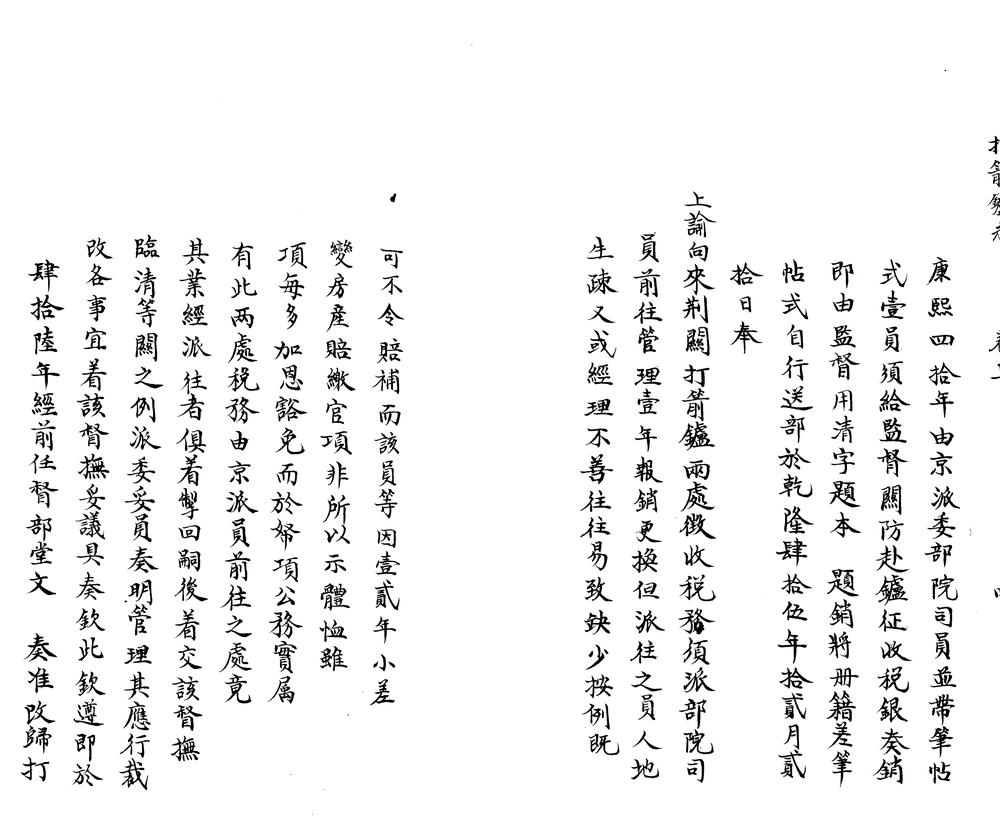 打箭鑪志 卷上
康熙四拾年由京派委部院司員並帶筆帖
式壹員須給監督關防赴鑪征收稅銀奏銷
即由監督用清字題本 題銷將册籍差筆
帖式自行送部於乾隆肆拾伍年拾貳月貳
拾日奉
上諭向來荆關打箭鑪兩處徴收税務須派部院司
員前往管理壹年報銷更換但派往之員人地
生疎又或經理不善往往易致鈌少按例既
可不令賠補而該員等因壹貳年小差
變房產賠繳官項非所以示體恤雖
項每多加恩豁免而於帑項公務實属
有此两處税務由京派員前往之處竟
其業經派往者俱着掣回嗣後着交該督撫
臨清等關之例派委妥員奏明管理其應行裁
改各事宜着該督撫妥議具奏欽此欽遵即於
肆拾陸年經前任督部堂文 奏准改歸打